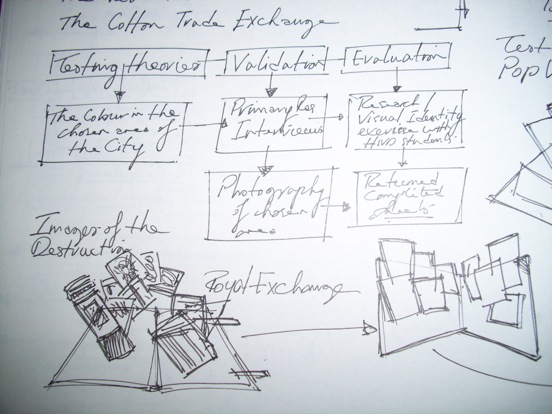 The Cotton Trade Exchange
Testing theories
Validation
Evaluation
The Colour in the
chosen area of
the City
Primary Res
Interviews
Research/
Visual Identity
exercise with
HND students
Photography
of chosen
area
Returned
Completed
sheets
Images of the
Destruction
Royal Exchange
Test
Pop U